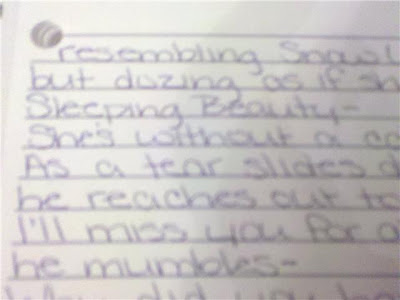 resembling Snow
but dozing as if sh
Sleeping Beauty-
She's without a ca
As a tear slides d
he reaches out to
I'll miss you for a
he mumbles-